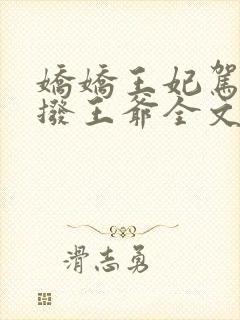 嬌嬌王妃駕
撥王爺全文
滑志勇